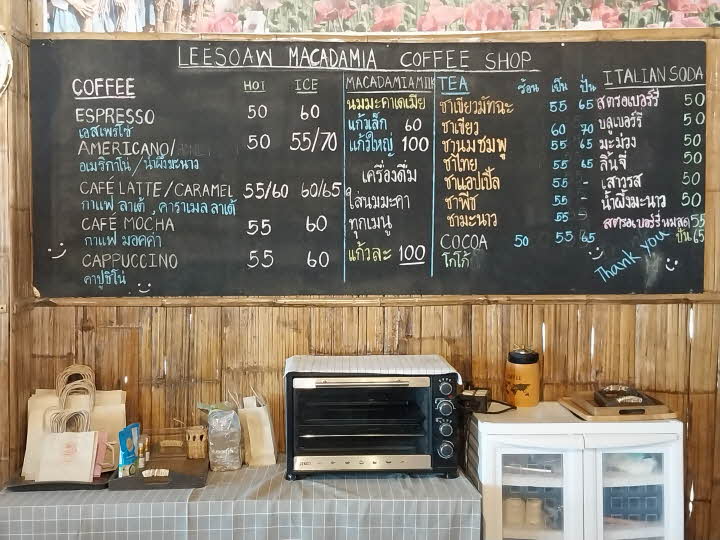 LEESOAW MACADAMIA COFFEE SHOP
COFFEE HOT ICE
ESPRESSO 50 60
เอสเพรสโซ่
AMERICANO/ 50 55/70
อเมริกาโน่ / น้ำผึ้งมะนาว
CAFÉ LATTE/CARAMEL 55/60 60/65
กาแฟ ลาเต้ , คาราเมล ลาเต้
CAFÉ MOCHA 55 60
กาแฟ มอคค่า
CAPPUCCINO 55 60
คาปูชิโน่
MACADAMIA MILK
นมมะคาเดเมีย
แก้วเล็ก 60
แก้วใหญ่ 100
เครื่องดื่ม
ใส่นมมะคา
ทุกเมนู
แก้วละ 100
TEA ร้อน เย็น ปั่น
ชาเขียวมัทฉะ 55 65
ชาเขียว 60 70
ชานมชมพู 55 65
ชาไทย 55 65
ชาแอปเปิ้ล 55 -
ชาพีช 55 -
ชามะนาว 55 -
COCOA 50 55 65
โกโก้
ITALIAN SODA
สตรอเบอร์รี่ 50
บลูเบอร์รี่ 50
มะม่วง 50
ลิ้นจี่ 50
เสาวรส 50
น้ำผึ้งมะนาว 50
สตรอเบอร์รี่นมสด 55
ปั่น 65
Thank you